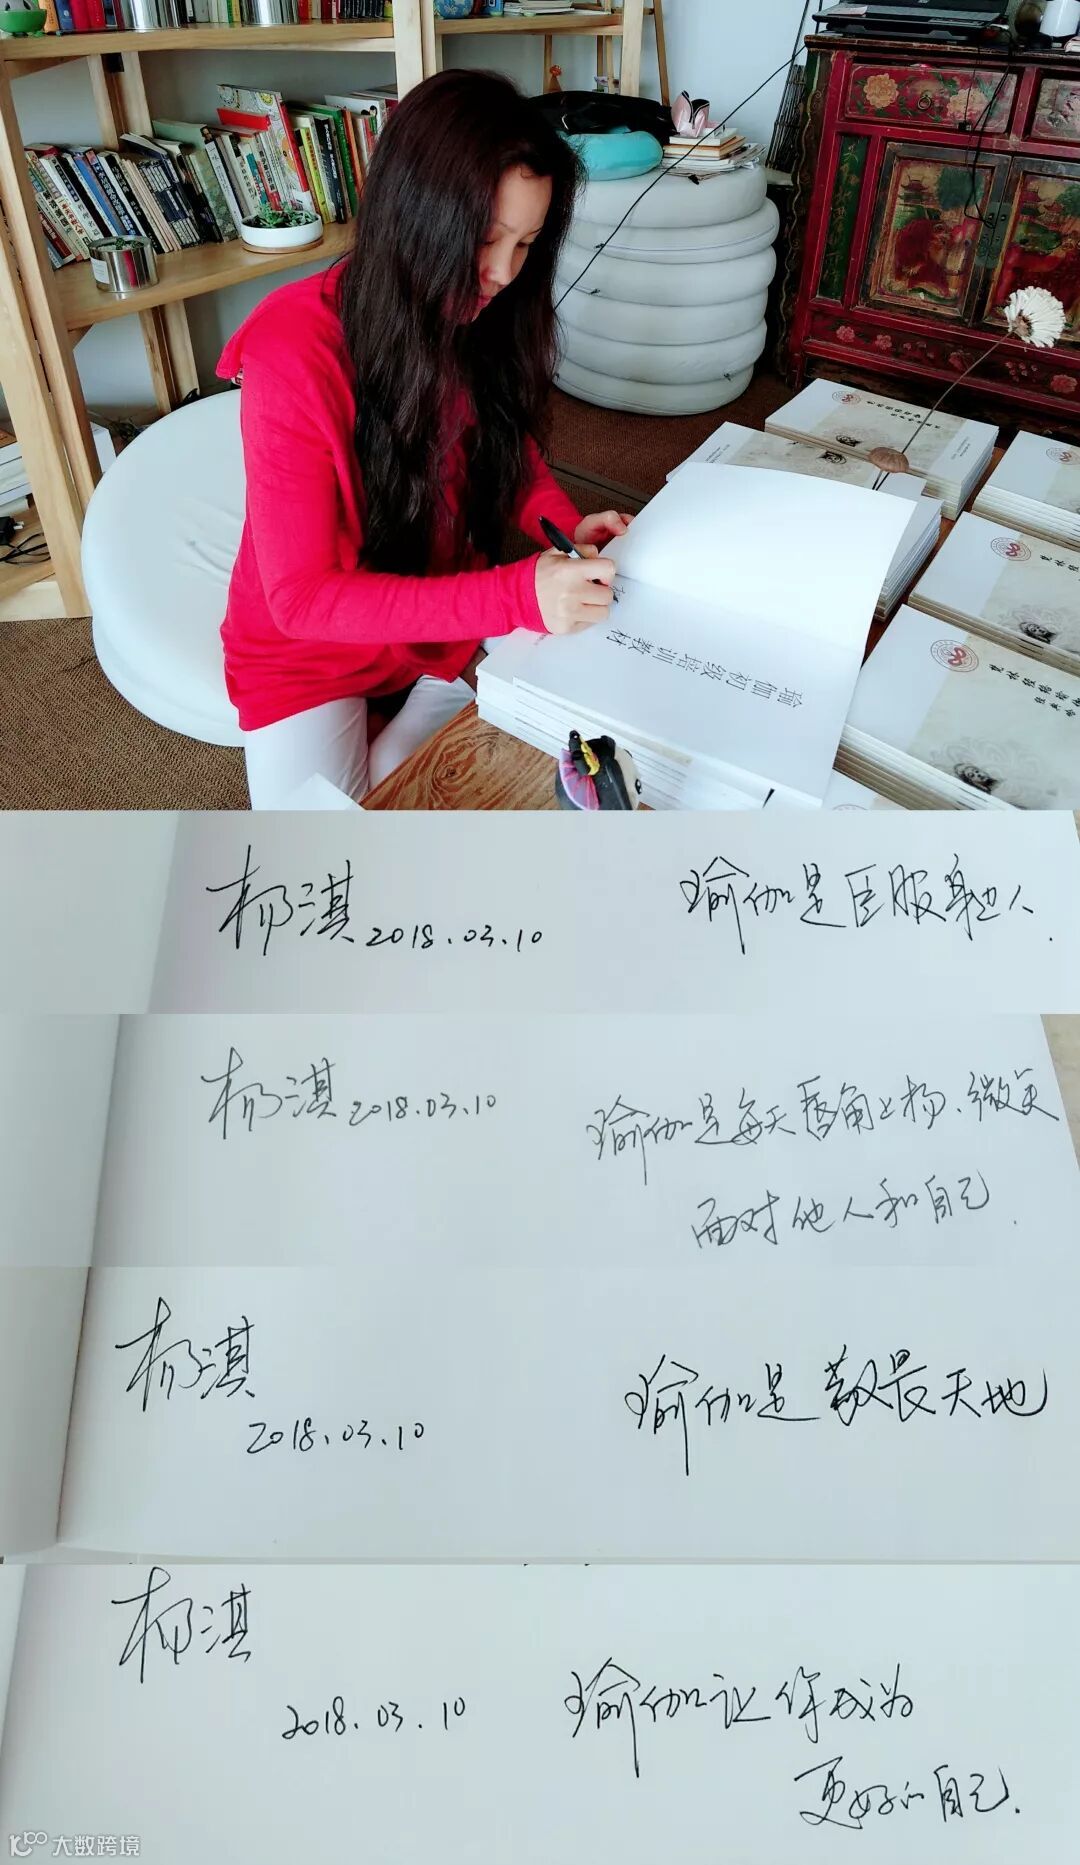 瑜伽初级培训教材
杨淇 2018.03.10
瑜伽是臣服身边人.
杨淇 2018.03.10
瑜伽是每天唇角上扬、微笑
面对他人和自己.
杨淇
2018.03.10
瑜伽是敬畏天地
杨淇
2018.03.10
瑜伽让你成为
更好的自己.
大数跨境